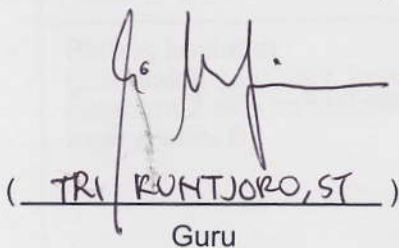 ( TRI KUNTJORO, ST )
Guru